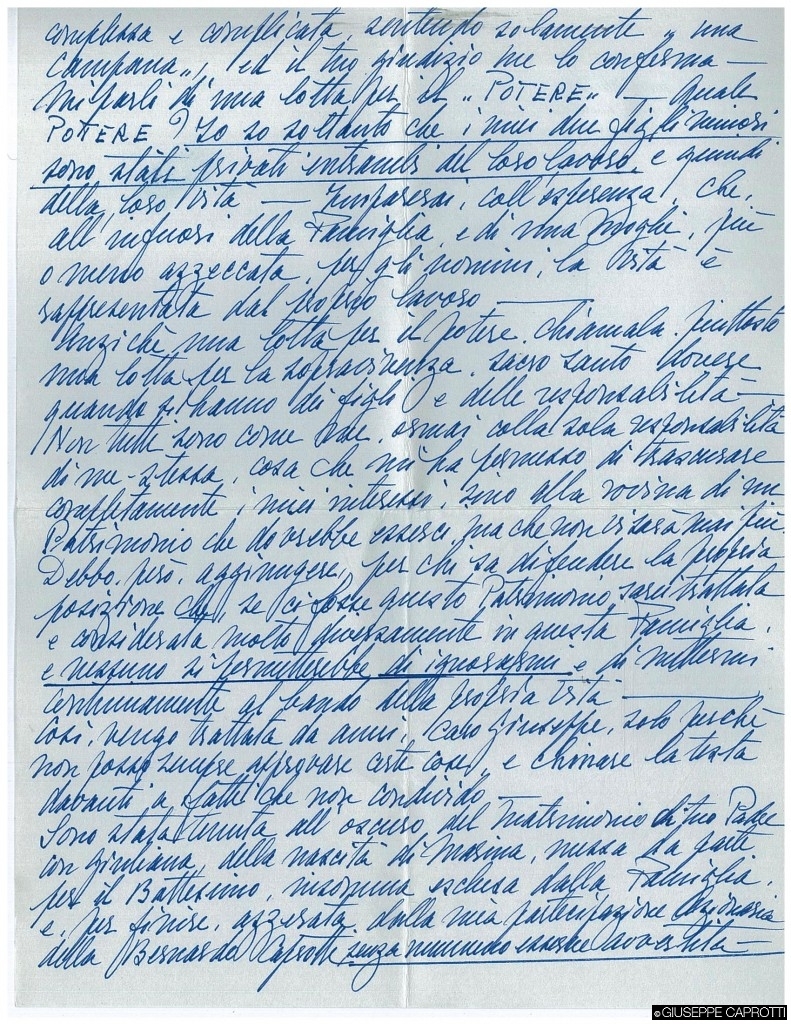 complessa e complicata, sentendo solamente „ una
campana „, ed il tuo giudizio me lo conferma —
Mi parli di una lotta per il „ POTERE „ — quale
POTERE ? Io so soltanto che i miei due figli minori
sono stati privati entrambi del loro lavoro e quindi
della loro vità — Imparerai, coll'esperenza, che,
all'infuori della Famiglia, e di una Moglie, più
o meno azzeccata, per gli uomini, la vità è
rappresentata dal proprio lavoro —
Anzichè una lotta per il potere, chiamala piuttosto
una lotta per la sopravivenza, sacro santo dovere
quando si hanno dei figli e delle responsabilità —
Non tutti sono come me, ormai colla sola responsabilità
di me-stessa, cosa che mi ha permesso di trascurare
completamente i miei interessi, sino alla rovina di un
Patrimonio che dovrebbe esserci, ma che non ci sarà mai più.
Debbo, però, aggiungere, per chi sa difendere la propria
posizione che, se ci fosse questo Patrimonio, sarei trattata
e considerata molto diversamente in questa Famiglia,
e nessuno si permetterebbe di ignorarmi e di mettermi
continuamente al bando della propria vità —
Così, vengo trattata da anni, caro Giuseppe, solo perchè
non posso sempre approvare certe cose, e chinare la testa
davanti a fatti che non condivido
Sono stata tenuta all'oscuro del Matrimonio di tuo Padre
con Giuliana, della nascità di Marina, messa da parte
per il Battesimo, insomma esclusa dalla Famiglia,
e, per finire, azzerata dalla mia partecipazione Azionaria
della Bernardo Caprotti senza nemmeno esserne avvertita —
©GIUSEPPE CAPROTTI